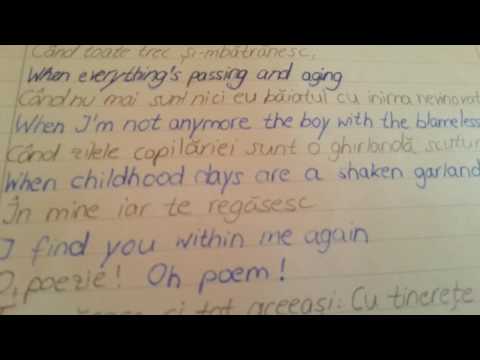 Când toate trec și-mbătrânesc,
When everything's passing and aging
Când nu mai sunt nici eu băiatul cu inima nevinovat
When I'm not anymore the boy with the blameless
Când zilele copilăriei sunt o ghirlandă scutur
When childhood days are a shaken garland
În mine iar te regăsesc
I find you within me again
O, poezie! Oh poem!
și tot aceeași: Cu tinerețe